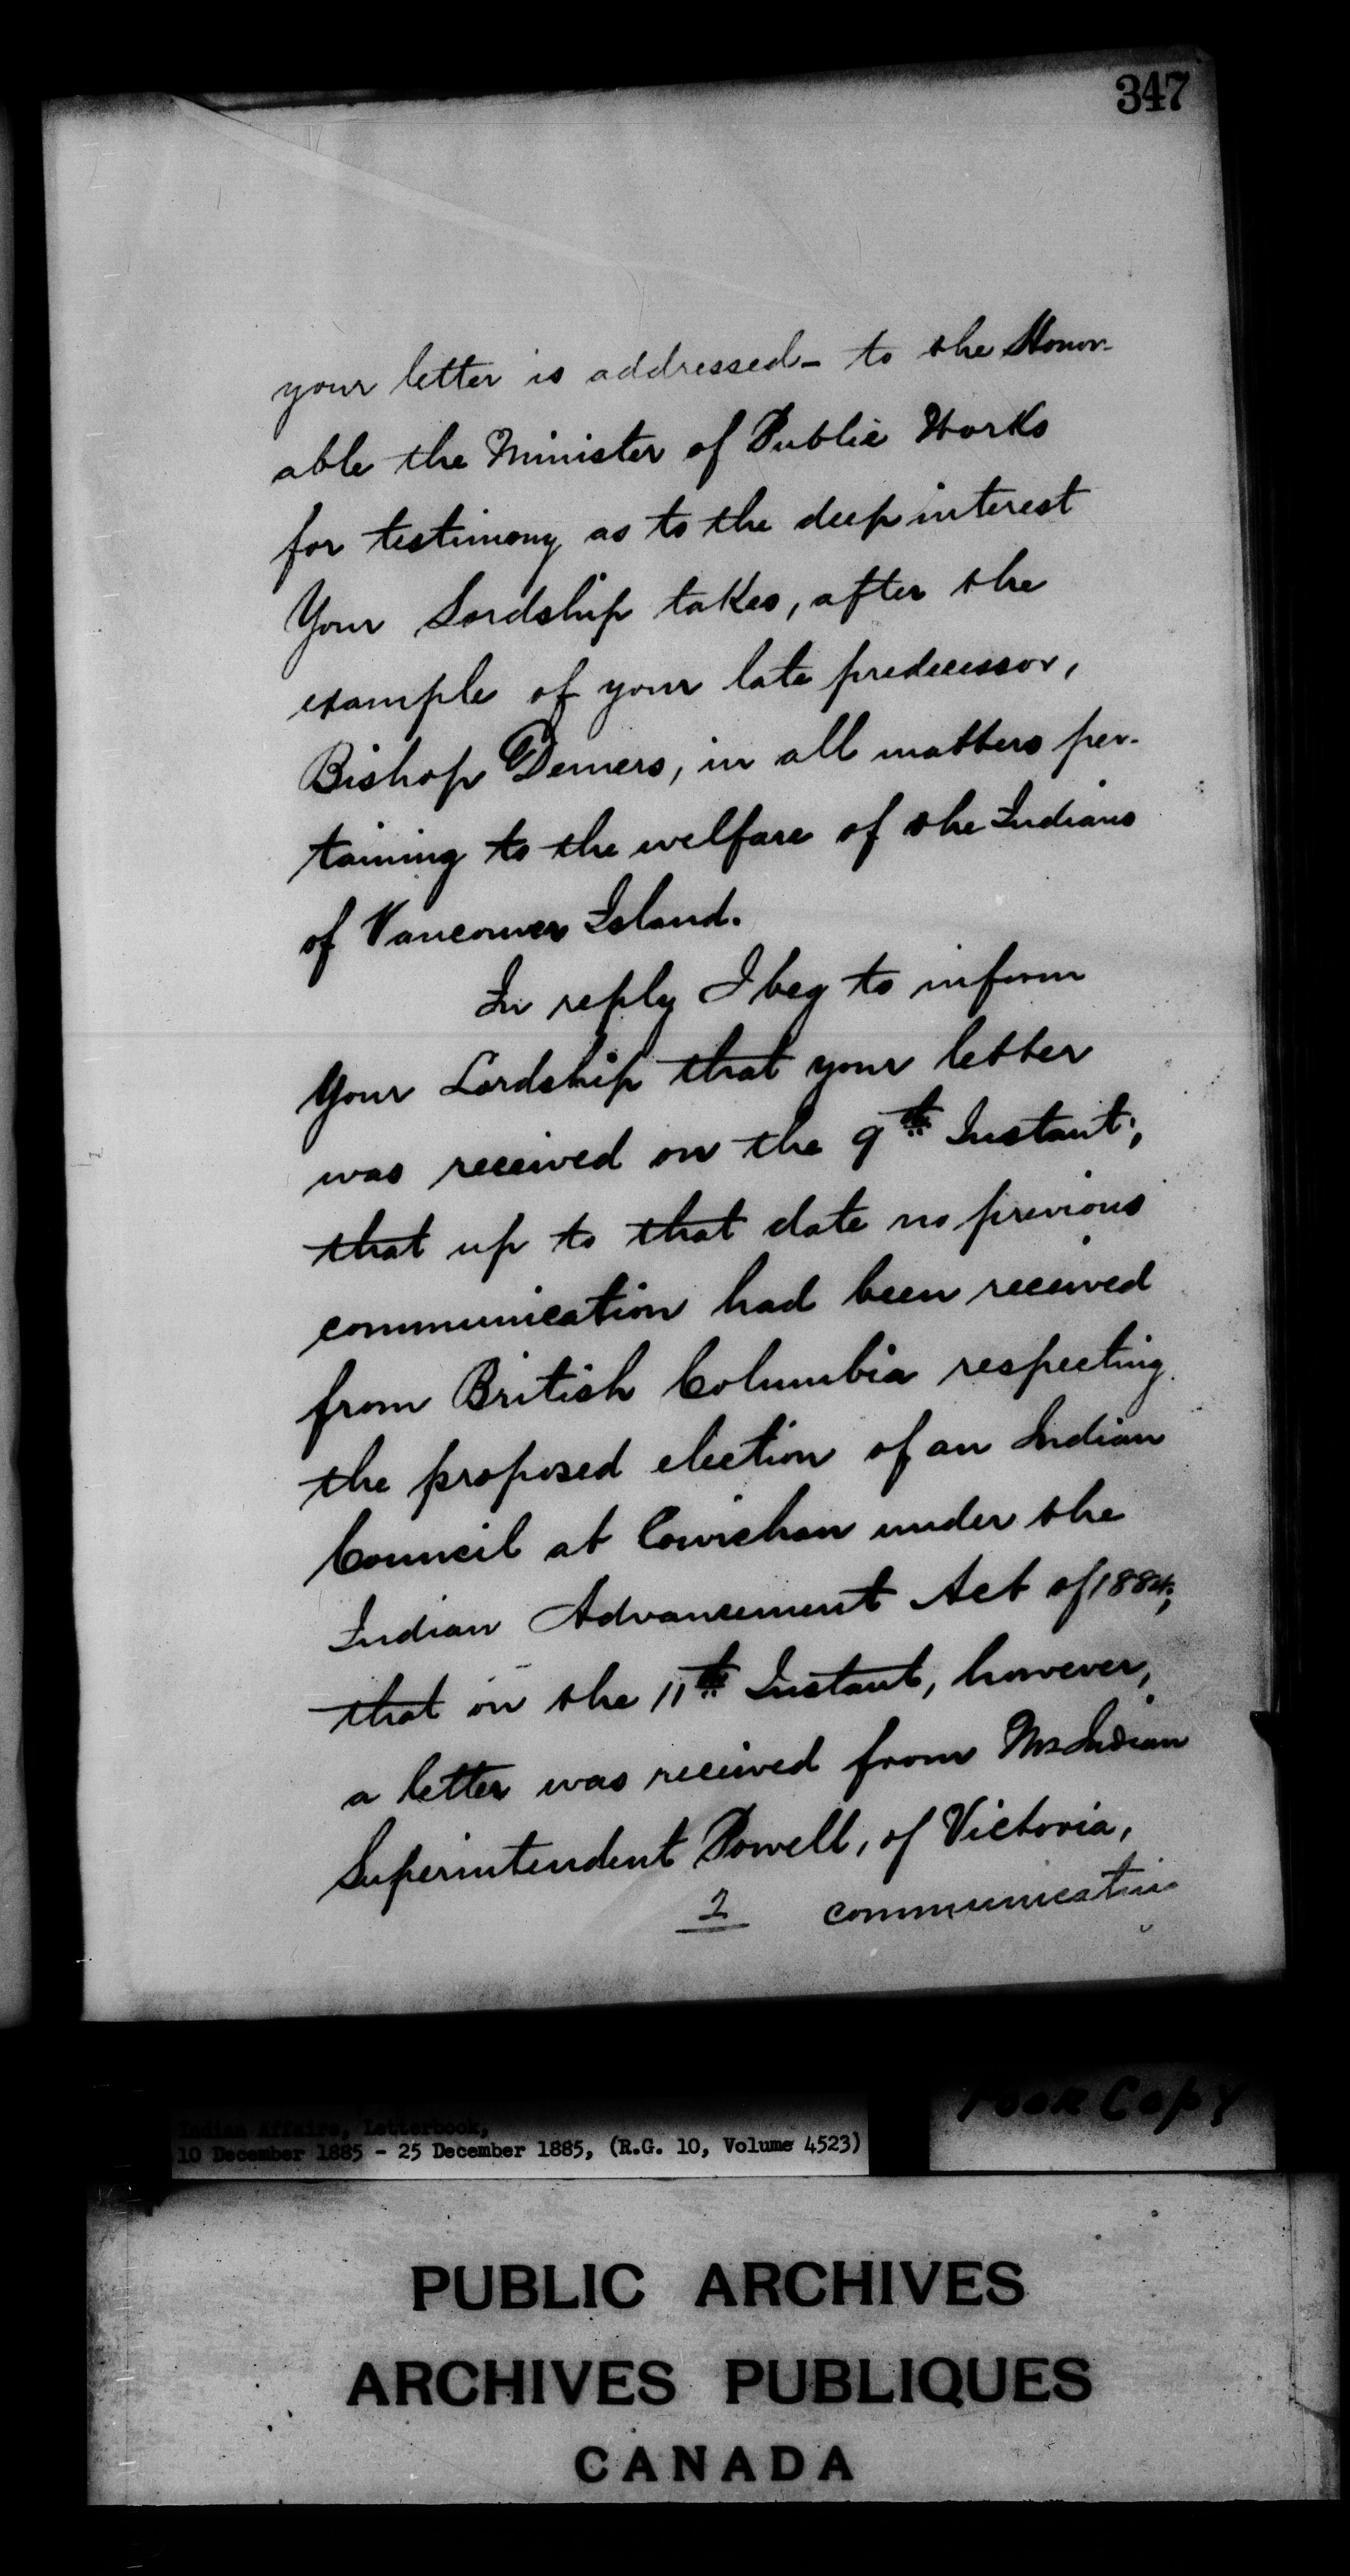 347
your letter is addressed - to the Honor-
able the Minister of Public Works
for testimony as to the deep interest
Your Lordship takes, after the
example of your late predecessor,
Bishop Demers, in all matters per-
taining to the welfare of the Indians
of Vancouver Island.
In reply I beg to inform
Your Lordship that your letter
was received on the 9th Instant;
that up to that date no previous
communication had been received
from British Columbia respecting
the proposed election of an Indian
Council at Cowichan under the
Indian Advancement Act of 1884;
that on the 11th Instant, however,
a letter was received from Mr Indian
Superintendent Powell, of Victoria,
2 communicating
Indian Affairs, Letterbook,
10 December 1885 - 25 December 1885, (R.G. 10, Volume 4523)
Poor Copy
PUBLIC ARCHIVES
ARCHIVES PUBLIQUES
CANADA